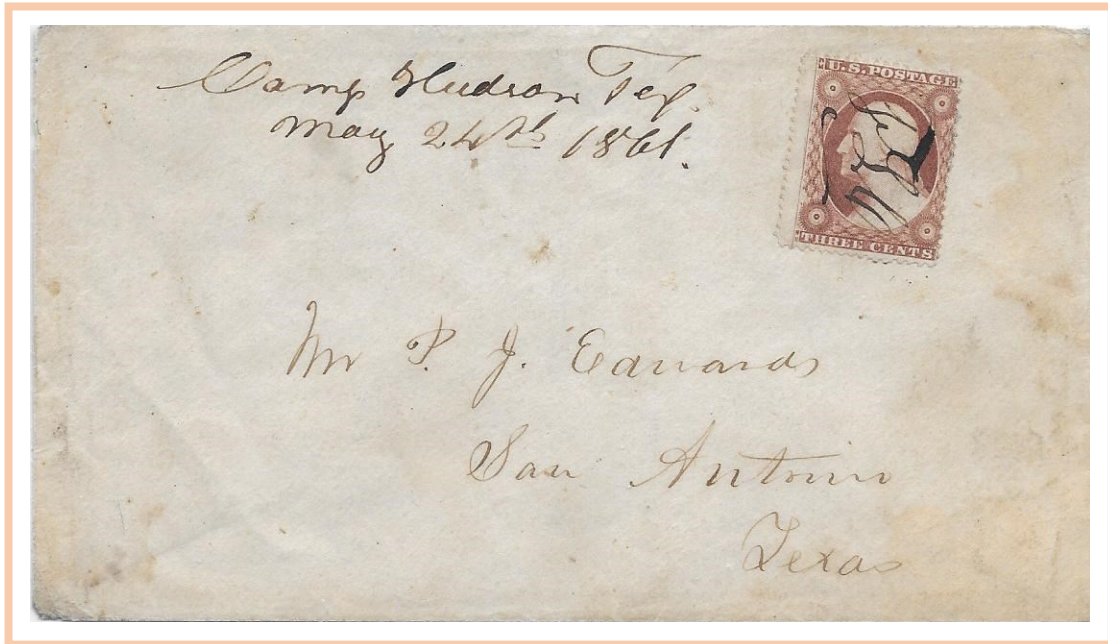 Camp Hudson Tex.
May 24th 1861.
U.S. POSTAGE
THREE CENTS
Mr P. J. Edwards
San Antonio
Texas